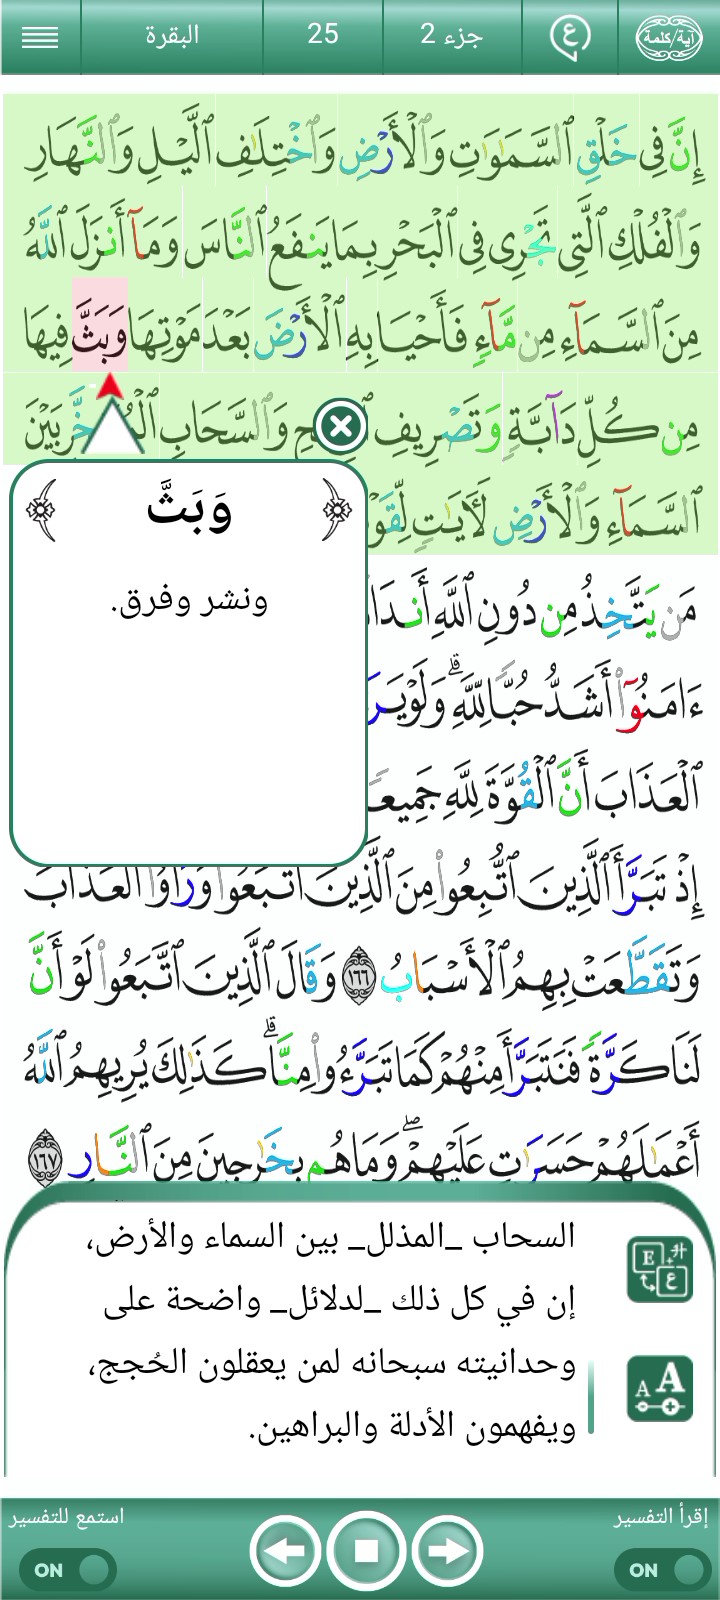 آية/كلمة
ع
جزء 2
25
البقرة
إِنَّ فِى خَلْقِ ٱلسَّمَٰوَٰتِ وَٱلْأَرْضِ وَٱخْتِلَٰفِ ٱلَّيْلِ وَٱلنَّهَارِ
وَٱلْفُلْكِ ٱلَّتِى تَجْرِى فِى ٱلْبَحْرِ بِمَا يَنفَعُ ٱلنَّاسَ وَمَآ أَنزَلَ ٱللَّهُ
مِنَ ٱلسَّمَآءِ مِن مَّآءٍ فَأَحْيَا بِهِ ٱلْأَرْضَ بَعْدَ مَوْتِهَا وَبَثَّ فِيهَا
مِن كُلِّ دَآبَّةٍ وَتَصْرِيفِ وَٱلسَّحَابِ بَيْنَ
ٱلسَّمَآءِ وَٱلْأَرْضِ لَءَايَٰتٍ
وَبَثَّ
ونشر وفرق.
مَن يَتَّخِذُ مِن دُونِ ٱللَّهِ
ءَامَنُوٓا۟ أَشَدُّ حُبًّا لِّلَّهِ ۗ وَلَوْ
ٱلْعَذَابَ أَنَّ ٱلْقُوَّةَ لِلَّهِ
إِذْ تَبَرَّأَ ٱلَّذِينَ ٱتُّبِعُوا۟ مِنَ ٱلَّذِينَ ٱتَّبَعُوا۟ وَرَأَوُا۟ ٱلْعَذَابَ
وَتَقَطَّعَتْ بِهِمُ ٱلْأَسْبَابُ ١٦٦ وَقَالَ ٱلَّذِينَ ٱتَّبَعُوا۟ لَوْ أَنَّ
لَنَا كَرَّةً فَنَتَبَرَّأَ مِنْهُمْ كَمَا تَبَرَّءُوا۟ مِنَّا ۗ كَذَٰلِكَ يُرِيهِمُ ٱللَّهُ
أَعْمَٰلَهُمْ حَسَرَٰتٍ عَلَيْهِمْ ۖ وَمَا هُم بِخَٰرِجِينَ مِنَ ٱلنَّارِ ١٦٧
السحاب _المذلل_ بين السماء والأرض،
إن في كل ذلك _لدلائل_ واضحة على
وحدانيته سبحانه لمن يعقلون الحُجج،
ويفهمون الأدلة والبراهين.
إقرأ التفسير
ON
استمع للتفسير
ON